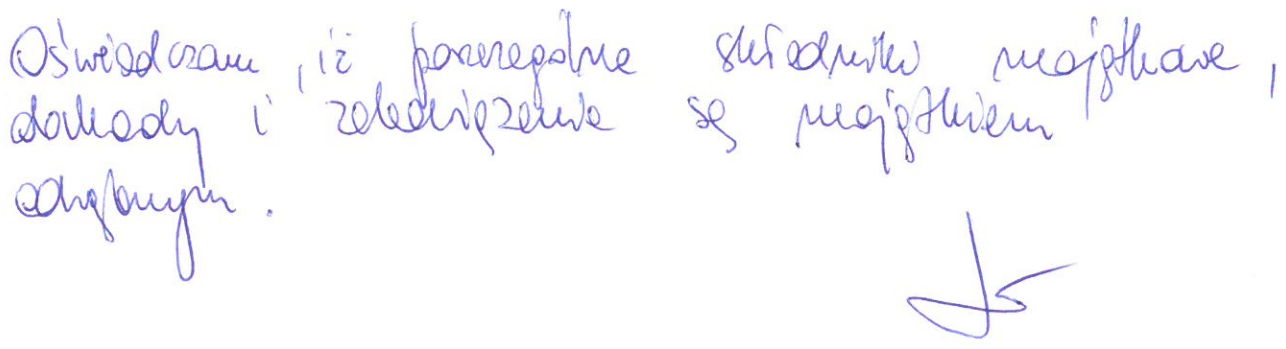 Oświadczam, iż poszczególne składniki majątkowe,
dochody i zobowiązania są majątkiem
odrębnym.